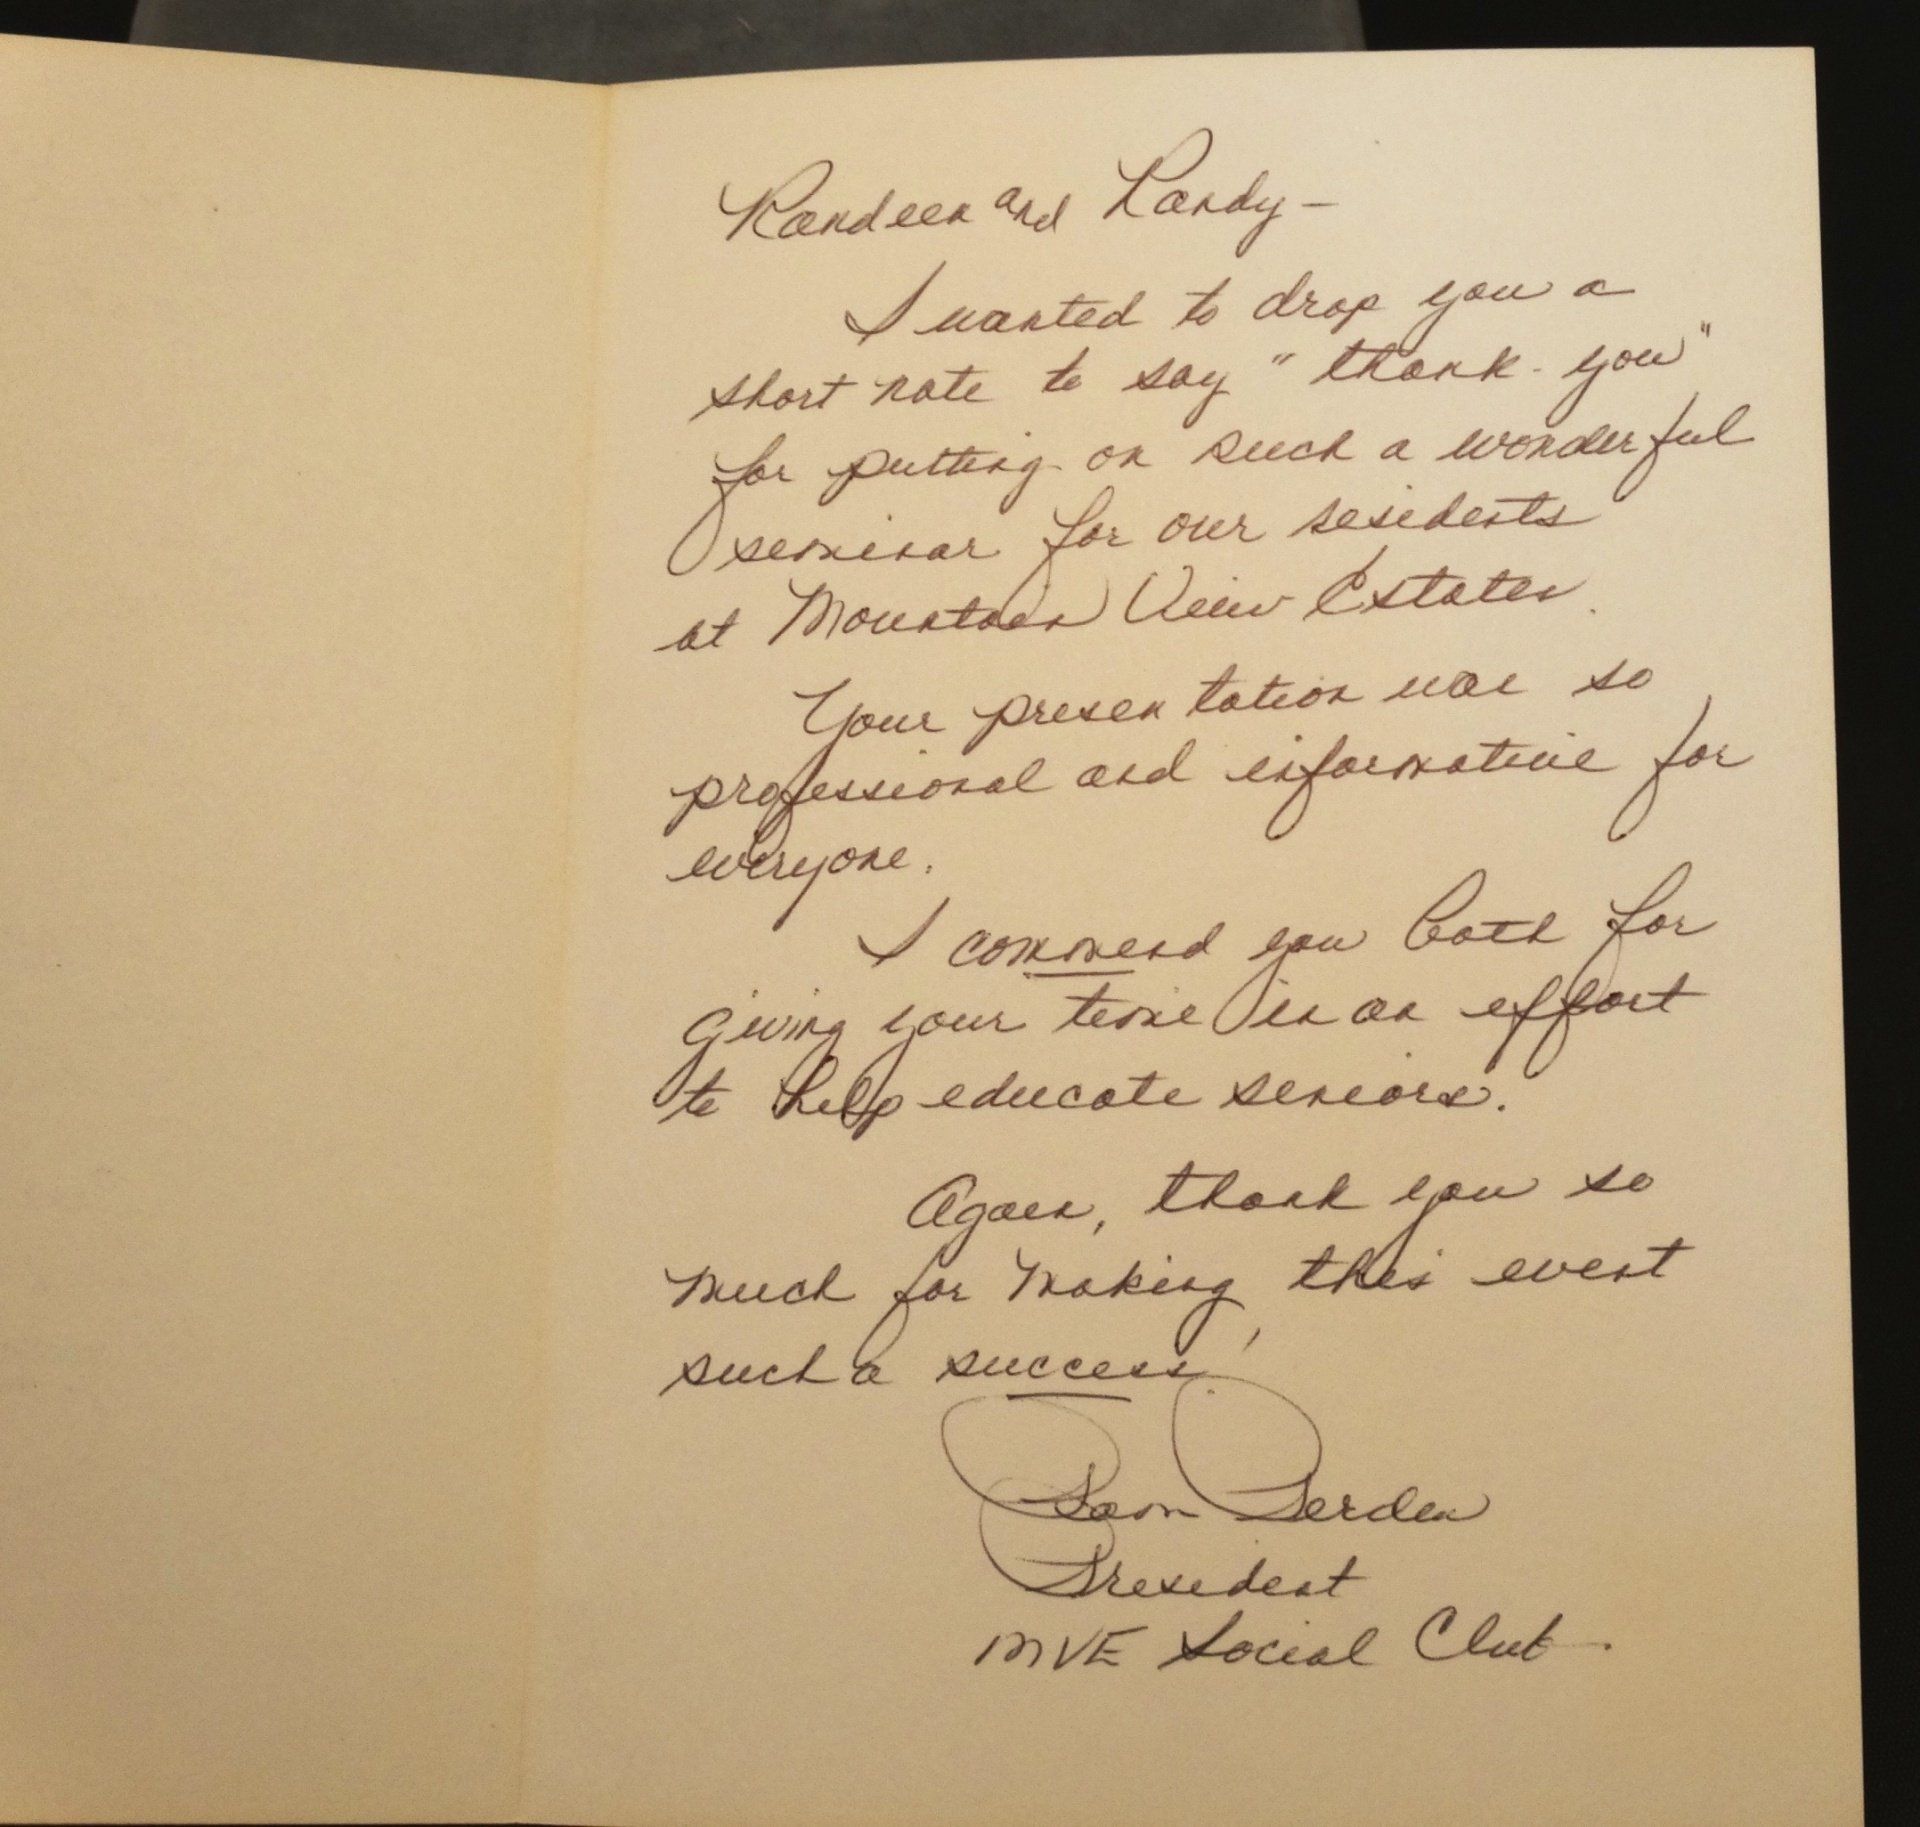 Randeen and Randy -
I wanted to drop you a
short note to say "thank-you"
for putting on such a wonderful
seminar for our residents
at Mountain View Estates.
Your presentation was so
professional and informative for
everyone.
I commend you both for
giving your time in an effort
to help educate seniors.
Again, thank you so
much for making this event
such a success!
Pam
President
MVE Social Club.